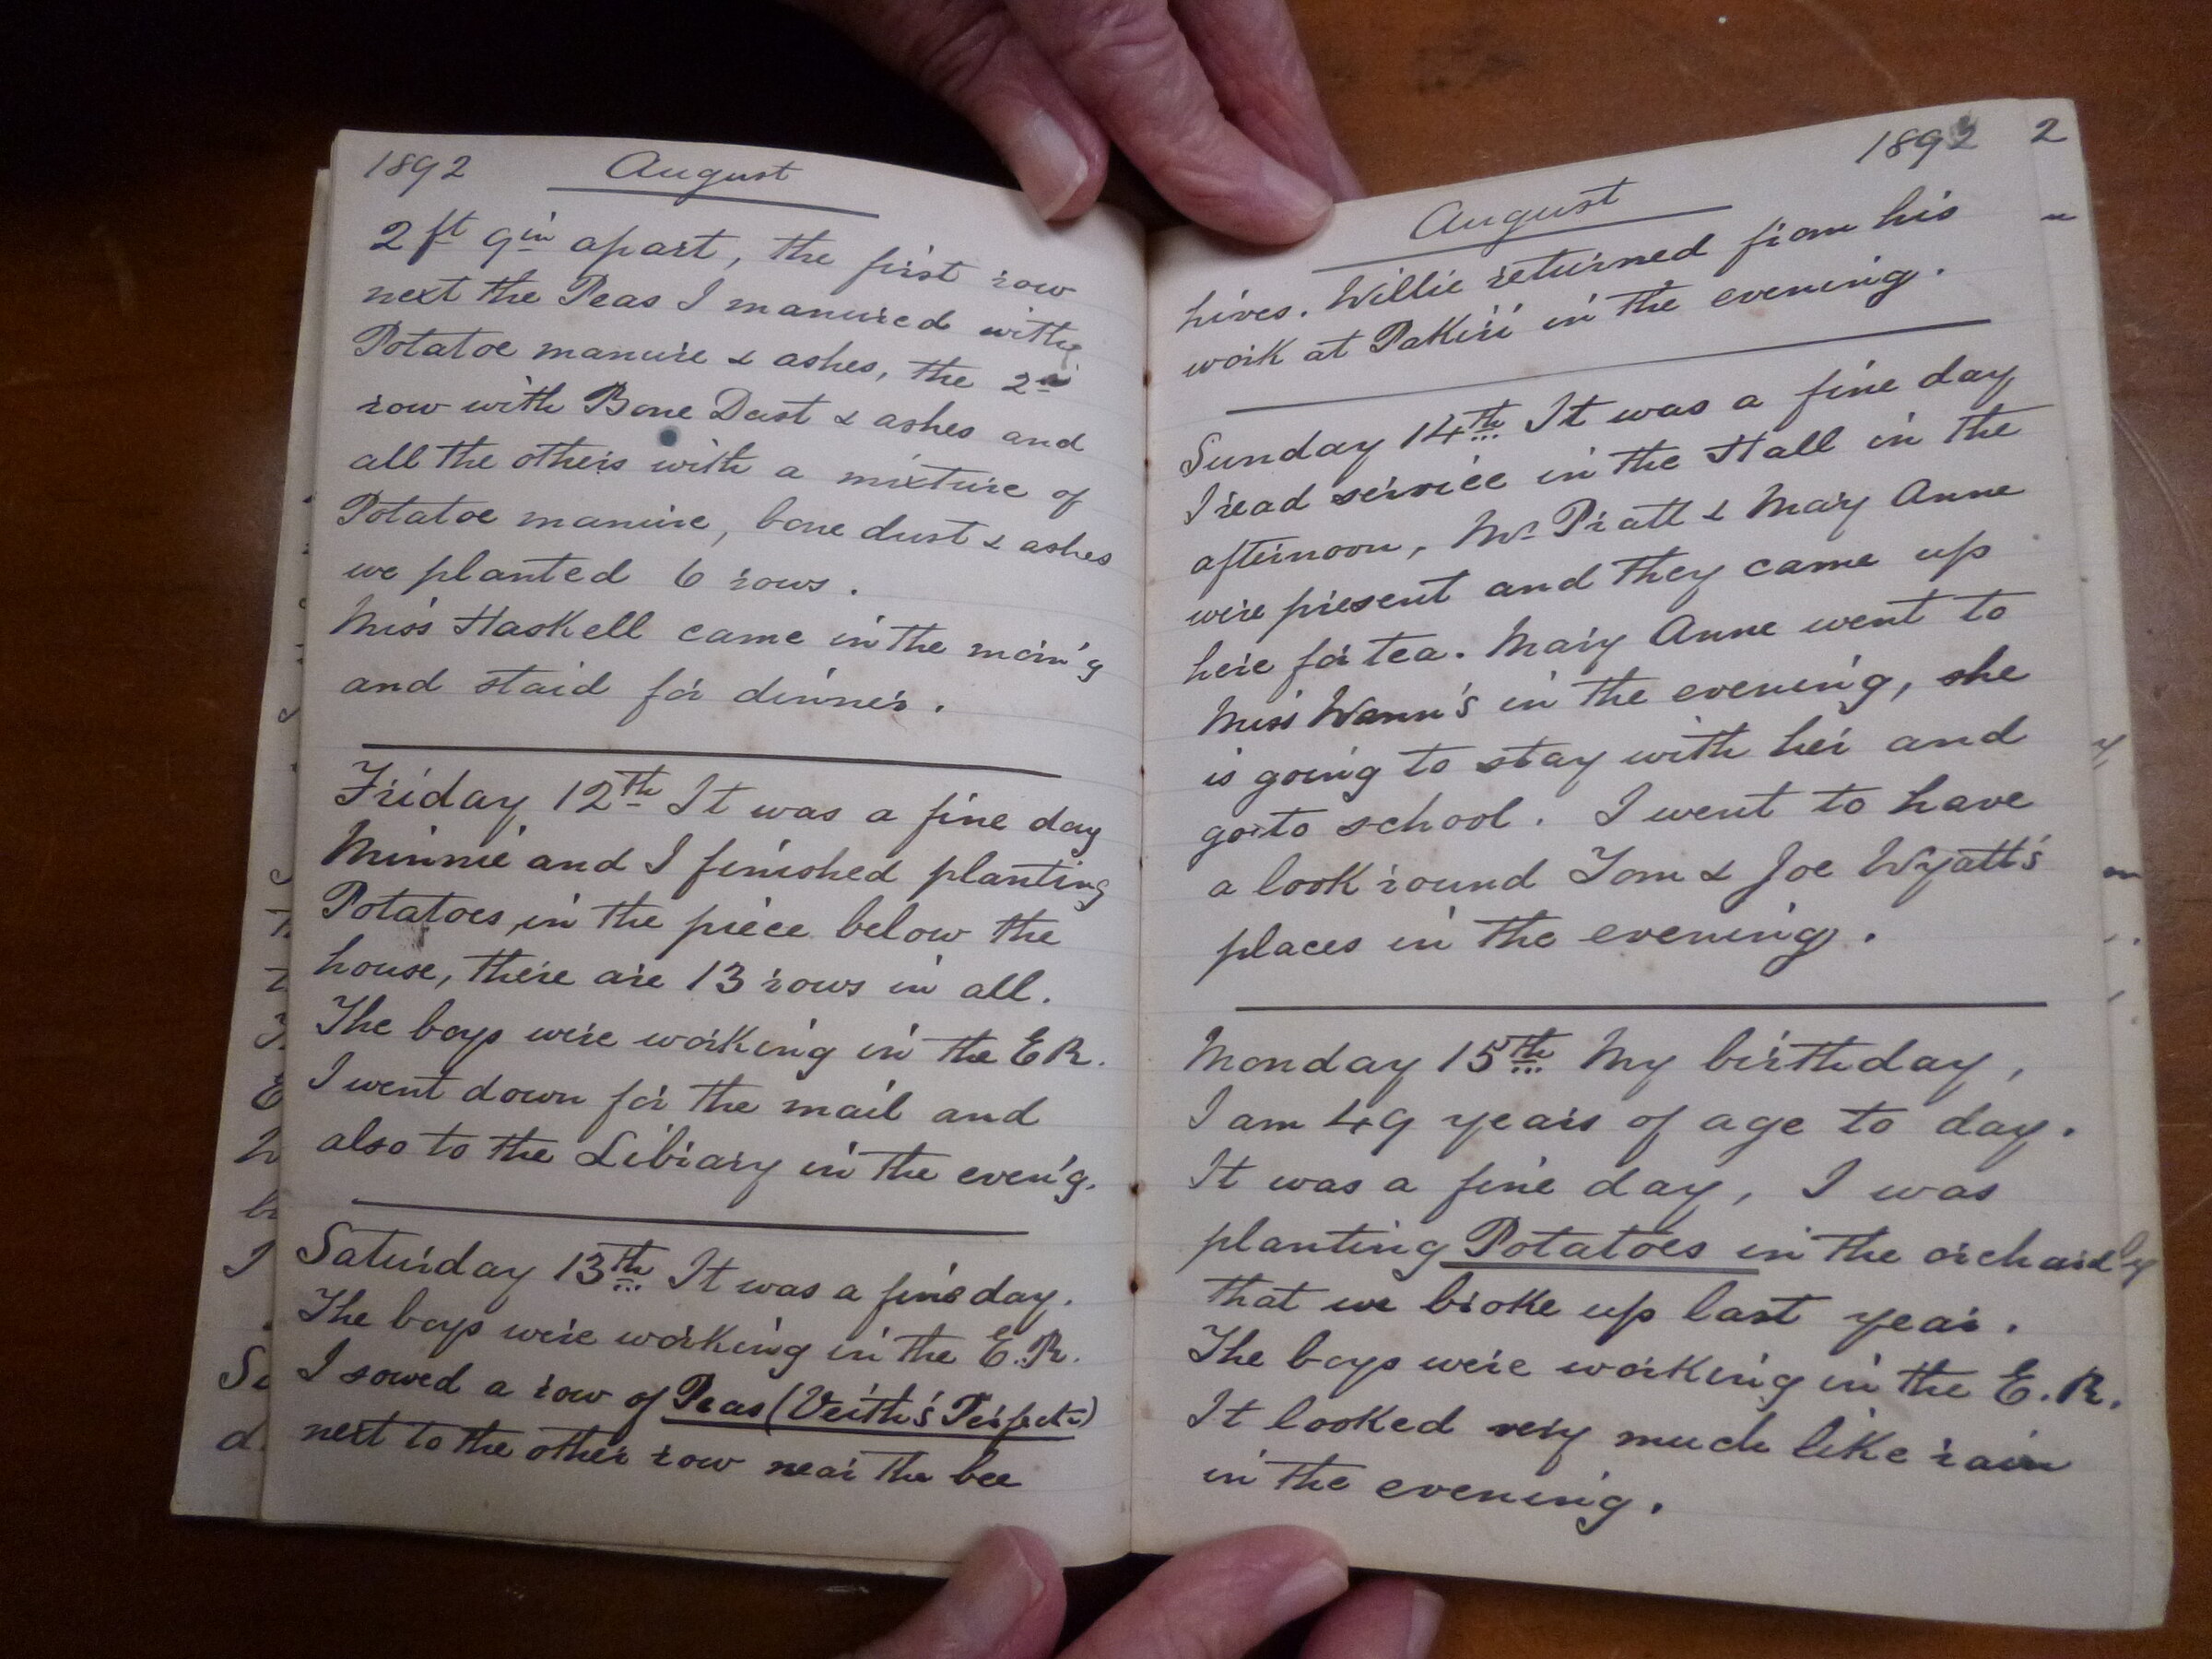 1892 August
2 ft 9in apart, the first row
next the Peas I manured with
Potatoe manure & ashes, the 2nd
row with Bone Dust & ashes and
all the others with a mixture of
Potatoe manure, bone dust & ashes
we planted 6 rows.
Miss Haskell came in the morn'g
and staid for dinner.
Friday 12th It was a fine day
Minnie and I finished planting
Potatoes, in the piece below the
house, there are 13 rows in all.
The boys were working in the E R.
I went down for the mail and
also to the Library in the even'g.
Saturday 13th It was a fine day.
The boys were working in the E. R.
I sowed a row of Peas (Veith's Perfectn)
next to the other row near the bee
1892
August
hives. Willie returned from his
work at Pakiri in the evening.
Sunday 14th It was a fine day
I read service in the Hall in the
afternoon, Mr Pratt & Mary Anne
were present and they came up
here for tea. Mary Anne went to
Miss Wann's in the evening, she
is going to stay with her and
go to school. I went to have
a look round Tom & Joe Wyatt's
places in the evening.
Monday 15th My birthday,
I am 49 years of age to day.
It was a fine day, I was
planting Potatoes in the orchard
that we broke up last year.
The boys were working in the E. R.
It looked very much like rain
in the evening.